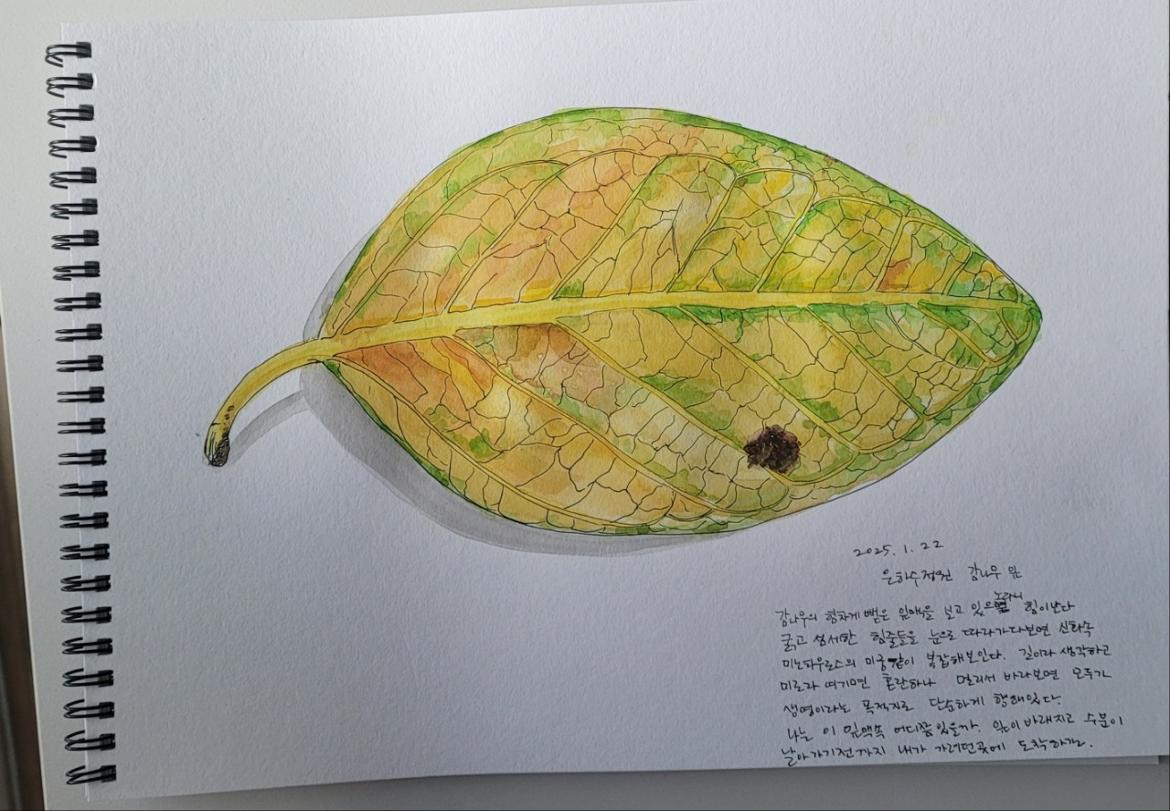 2025. 1. 22
은하수정원 감나무 잎
감나무의 힘차게 뻗은 잎맥을 보고 있으 노라니 힘이난다
굵고 섬세한 힘줄들을 눈으로 따라가다보면 신화속
미노타우로스의 미궁같이 복잡해보인다. 길이라 생각하고
미로라 여기면 혼란하나 멀리서 바라보면 모두가
생명이라는 목적지로 단순하게 향해있다.
나는 이 잎맥속 어디쯤 있을까. 잎이 바래지고 수분이
날아가기전까지 내가 가려던곳에 도착하기를.